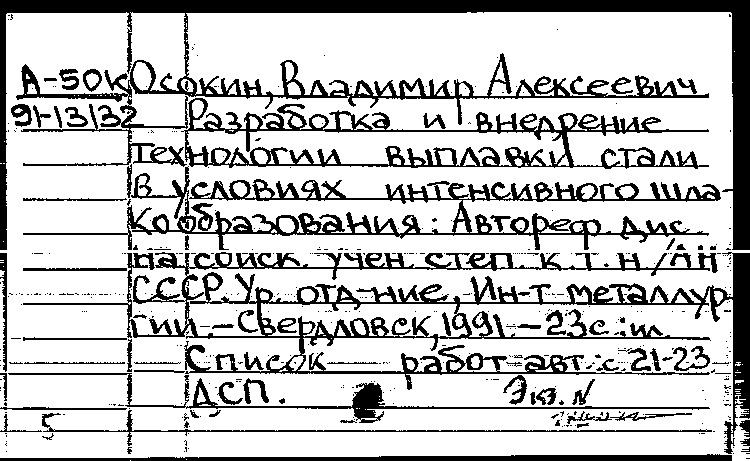 А-50к Осокин, Владимир Алексеевич
91-13132 Разработка и внедрение
технологии выплавки стали
в условиях интенсивного шла-
кообразования: Автореф. дис.
на соиск. учен. степ. к.т.н /АН
СССР. Ур. отд-ние, Ин-т металлур-
гии.-Свердловск, 1991.-23с.:ил.
Список работ авт.:с.21-23
ДСП. Экз. N
5